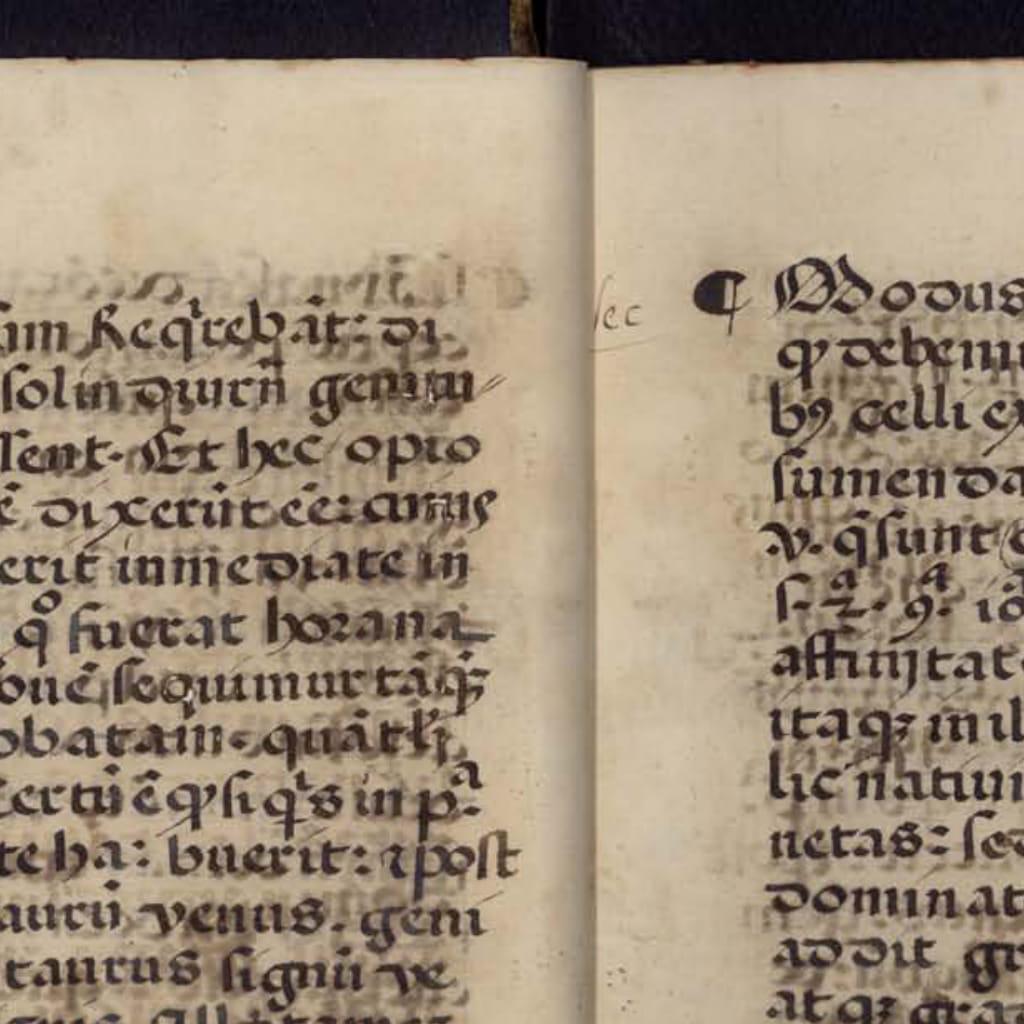 Req̇rebāt: di
sol in diurñ gemini
lent. Et hec opio
ē dixerūt eē: cuius
erit inmediate in
q° fuerat hora na
ouē sequimur tā q̄ꝫ
obatam. quātū
certū ē ꝙ si q̇s in pᵃ
te ha: buerit: ⁊ post
auru venus. gemi
taurus signū ve
sec
¶ Modus
ꝙ debemu
bꝰ celli ex
sumenda
.v. q̄ sunt
s. 2ᵃ. 9ᵃ. iō
affinitat
itaqꝫ in il
lic natiui
netas: sed
dominat
addit gr
atqꝫ grad